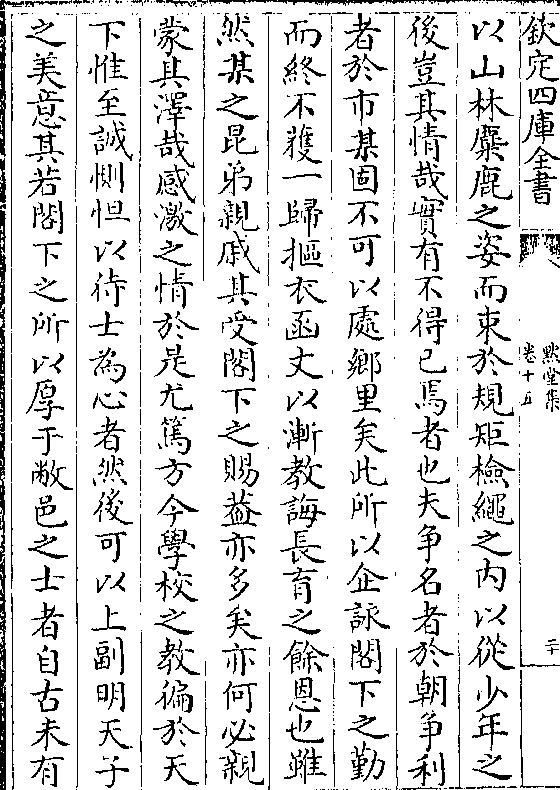 欽定四庫全書
默堂集
卷十五
二十
以山林麋鹿之姿而束於規矩檢繩之内以從少年之
後豈其情哉實有不得已焉者也夫争名者於朝争利
者於市某固不可以處鄉里矣此所以企詠閣下之勤
而終不獲一歸摳衣函丈以漸教誨長育之餘恩也雖
然某之昆弟親戚其受閣下之賜葢亦多矣亦何必親
蒙其澤哉感激之情於是尤篤方今學校之教徧於天
下惟至誠惻怛以待士為心者然後可以上副明天子
之美意其若閣下之所以厚于敝邑之士者自古未有